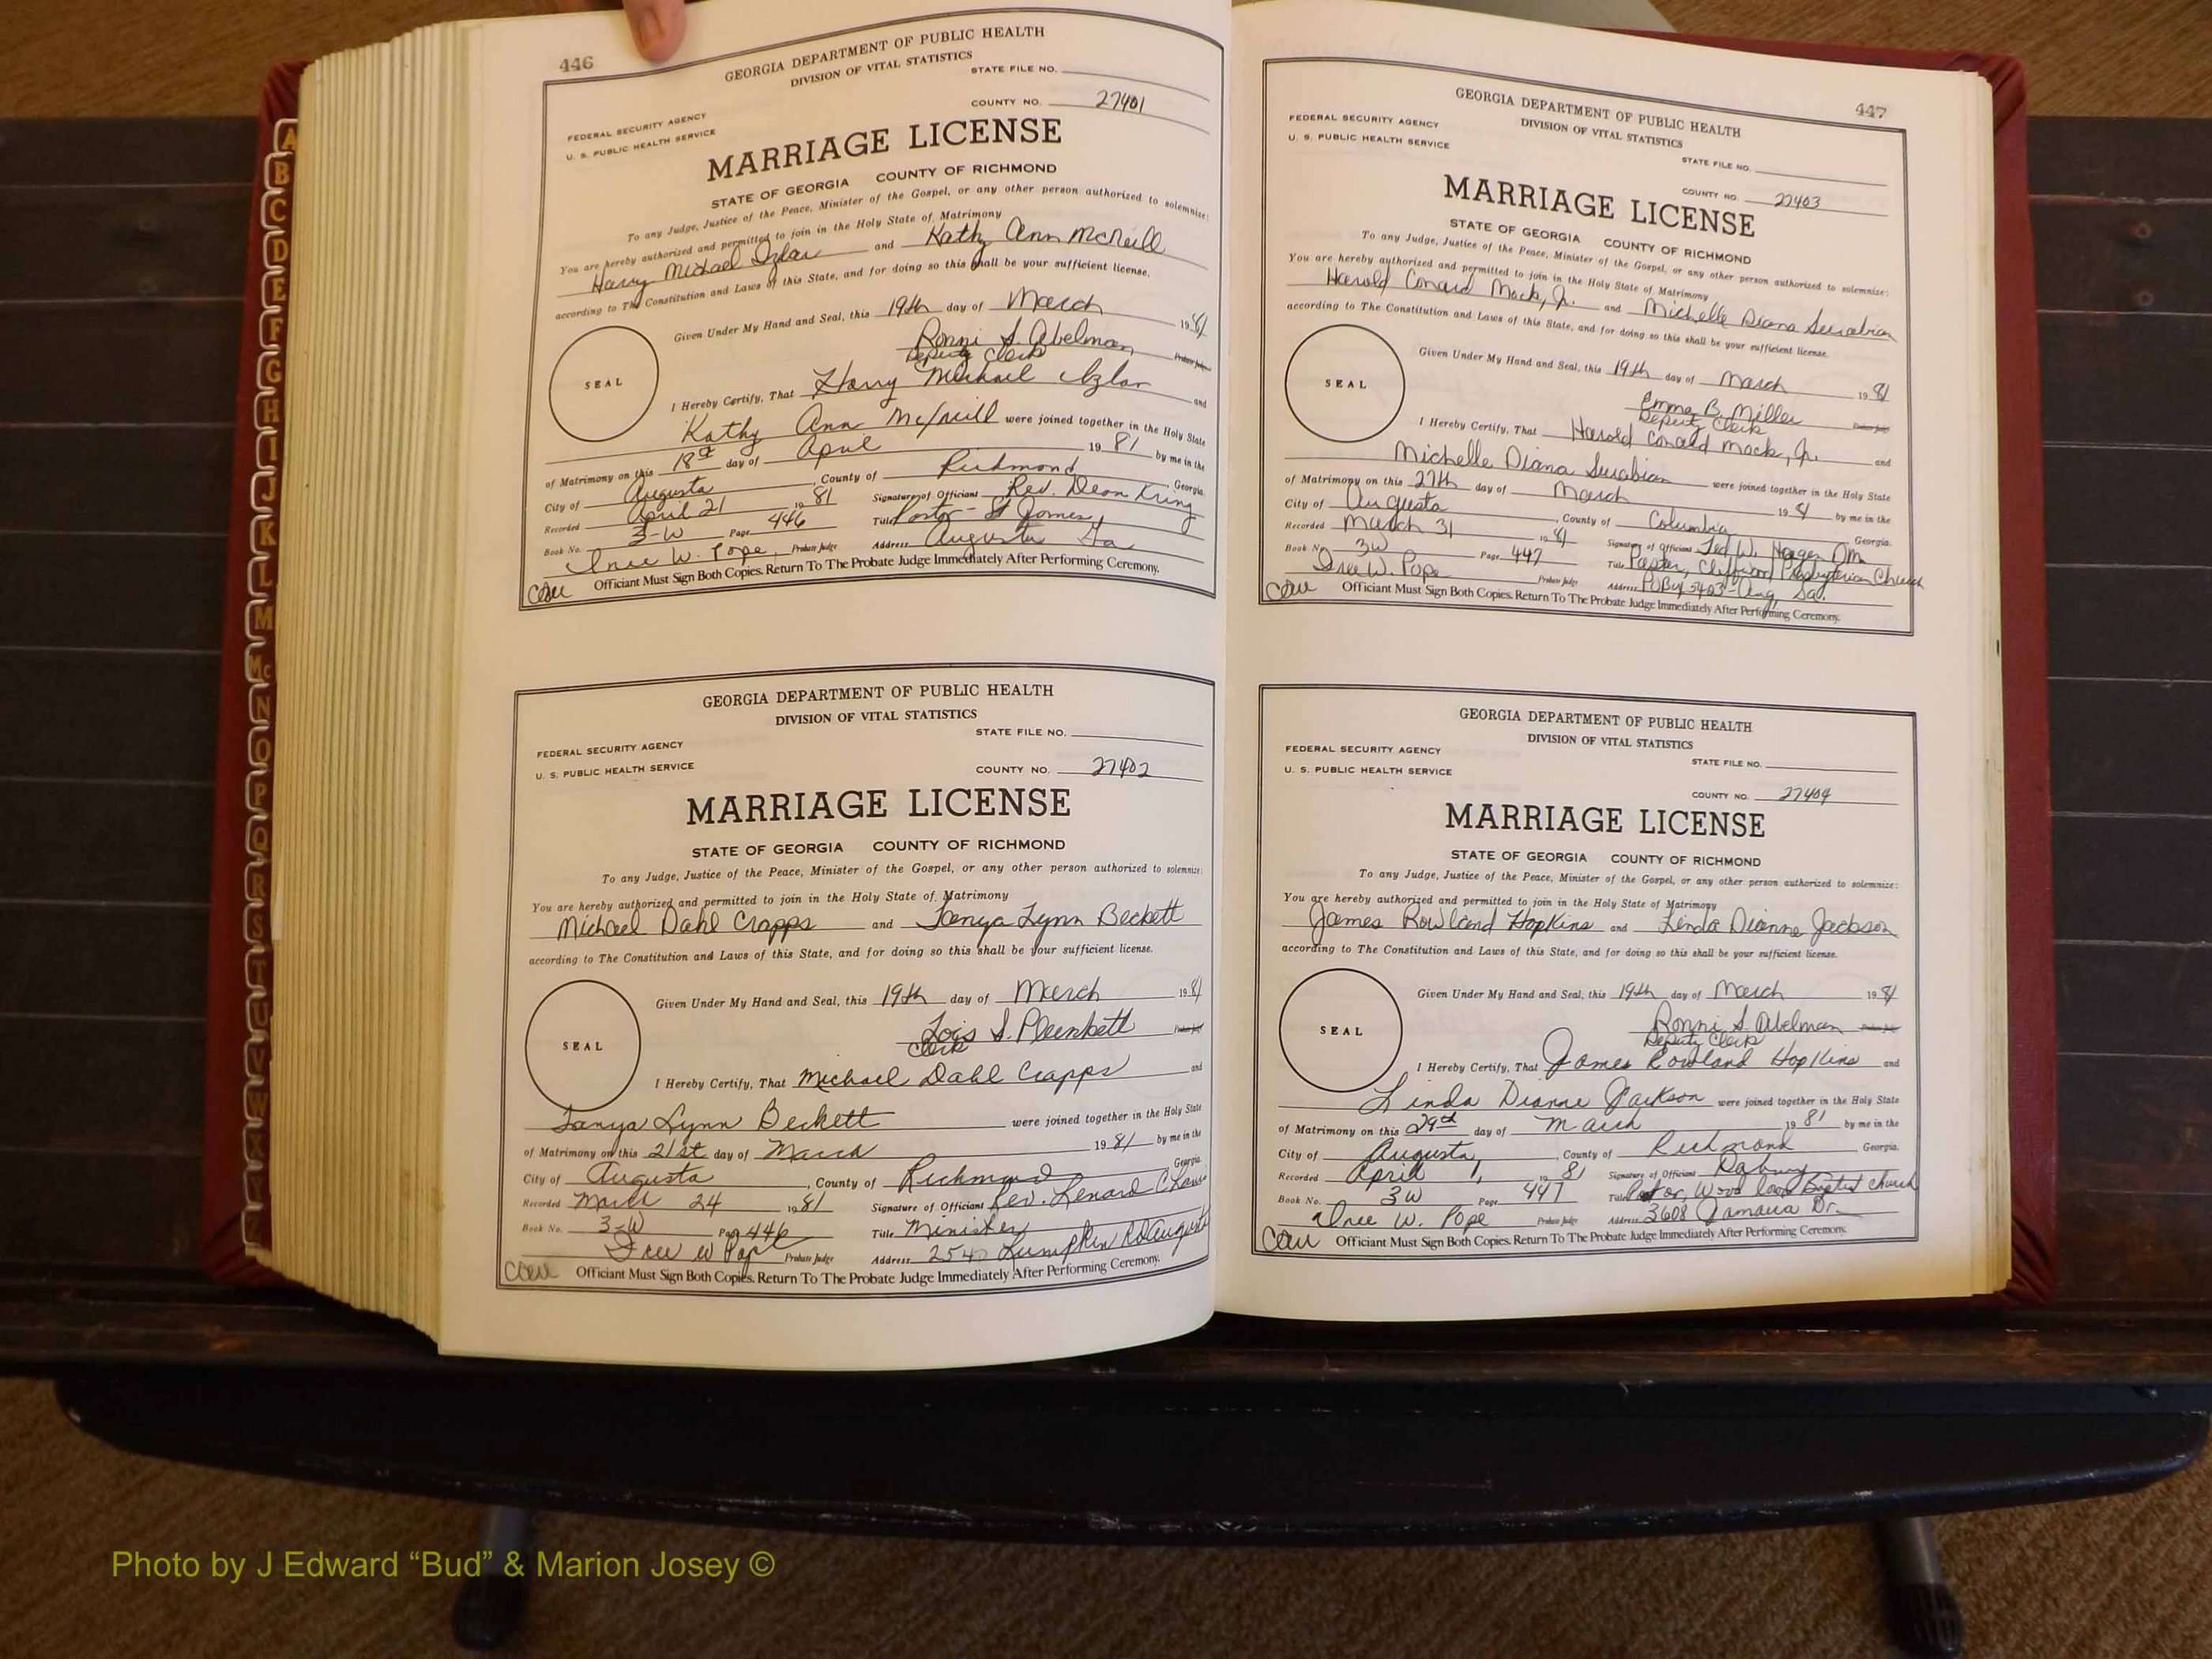 A
B
C
D
E
F
G
H
I
J
K
L
M
Mc
N
O
P
Q
R
S
T
U
V
W
446
GEORGIA DEPARTMENT OF PUBLIC HEALTH
DIVISION OF VITAL STATISTICS
STATE FILE NO.
COUNTY NO. 27401
FEDERAL SECURITY AGENCY
U. S. PUBLIC HEALTH SERVICE
MARRIAGE LICENSE
STATE OF GEORGIA COUNTY OF RICHMOND
To any Judge, Justice of the Peace, Minister of the Gospel, or any other person authorized to solemnize:
You are hereby authorized and permitted to join in the Holy State of Matrimony
Harry Michael Izlar and Kathy Ann McNeill
according to The Constitution and Laws of this State, and for doing so this shall be your sufficient license.
Given Under My Hand and Seal, this 19th day of March 1981
Ronni S. Abelman Probate Judge
Deputy Clerk
SEAL
I Hereby Certify, That Harry Michael Izlar and
Kathy Ann McNeill were joined together in the Holy State
of Matrimony on this 18th day of April 1981 by me in the
City of Augusta, County of Richmond, Georgia.
Recorded April 21 1981 Signature of Officiant Rev. Dean Kring
Book No. 3-W Page 446 Title Pastor - St James
Inee W. Pope, Probate Judge Address Augusta Ga
Officiant Must Sign Both Copies. Return To The Probate Judge Immediately After Performing Ceremony.
GEORGIA DEPARTMENT OF PUBLIC HEALTH
DIVISION OF VITAL STATISTICS
STATE FILE NO.
FEDERAL SECURITY AGENCY
U. S. PUBLIC HEALTH SERVICE
COUNTY NO. 27402
MARRIAGE LICENSE
STATE OF GEORGIA COUNTY OF RICHMOND
To any Judge, Justice of the Peace, Minister of the Gospel, or any other person authorized to solemnize:
You are hereby authorized and permitted to join in the Holy State of Matrimony
Michael Dahl Crapps and Tanya Lynn Beckett
according to The Constitution and Laws of this State, and for doing so this shall be your sufficient license.
Given Under My Hand and Seal, this 19th day of March 1981
Lois S. Plunkett Probate Judge
Clerk
SEAL
I Hereby Certify, That Michael Dahl Crapps and
Tanya Lynn Beckett were joined together in the Holy State
of Matrimony on this 21st day of March 1981 by me in the
City of Augusta, County of Richmond Georgia.
Recorded March 24 1981 Signature of Officiant Rev. Lenard
Book No. 3-W Page 446 Title Minister
W Pope Probate Judge Address 254 Lumpkin Rd August
Officiant Must Sign Both Copies. Return To The Probate Judge Immediately After Performing Ceremony.
447
GEORGIA DEPARTMENT OF PUBLIC HEALTH
DIVISION OF VITAL STATISTICS
FEDERAL SECURITY AGENCY
U. S. PUBLIC HEALTH SERVICE
STATE FILE NO.
COUNTY NO. 27403
MARRIAGE LICENSE
STATE OF GEORGIA COUNTY OF RICHMOND
To any Judge, Justice of the Peace, Minister of the Gospel, or any other person authorized to solemnize:
You are hereby authorized and permitted to join in the Holy State of Matrimony
Harold Conard Mock, Jr. and Michelle Diana Surabian
according to The Constitution and Laws of this State, and for doing so this shall be your sufficient license.
Given Under My Hand and Seal, this 19th day of March 1981
Emma B. Miller Probate Judge
Deputy Clerk
SEAL
I Hereby Certify, That Harold Conard Mock, Jr. and
Michelle Diana Surabian were joined together in the Holy State
of Matrimony on this 27th day of March 1981 by me in the
City of Augusta, County of Columbia Georgia.
Recorded March 31 1981 Signature of Officiant Ted W. Hager DM
Book No. 3W Page 447 Title Pastor, Cliffwood Presbyterian Church
W. Pope Probate Judge Address POBx 5403-Aug, Ga.
Officiant Must Sign Both Copies. Return To The Probate Judge Immediately After Performing Ceremony.
GEORGIA DEPARTMENT OF PUBLIC HEALTH
DIVISION OF VITAL STATISTICS
FEDERAL SECURITY AGENCY
U. S. PUBLIC HEALTH SERVICE
STATE FILE NO.
COUNTY NO. 27404
MARRIAGE LICENSE
STATE OF GEORGIA COUNTY OF RICHMOND
To any Judge, Justice of the Peace, Minister of the Gospel, or any other person authorized to solemnize:
You are hereby authorized and permitted to join in the Holy State of Matrimony
James Rowland Hopkins and Linda Dianne Jackson
according to The Constitution and Laws of this State, and for doing so this shall be your sufficient license.
Given Under My Hand and Seal, this 19th day of March 1981
Ronni S. Abelman Probate Judge
Deputy Clerk
SEAL
I Hereby Certify, That James Rowland Hopkins and
Linda Dianne Jackson were joined together in the Holy State
of Matrimony on this 29th day of March 1981 by me in the
City of Augusta, County of Richmond Georgia.
Recorded April 1, 1981 Signature of Officiant
Book No. 3W Page 447 Title Pastor, Woodlawn Baptist Church
Inee W. Pope Probate Judge Address 3608 Jamaica Dr.
Officiant Must Sign Both Copies. Return To The Probate Judge Immediately After Performing Ceremony.
Photo by J Edward “Bud” & Marion Josey ©